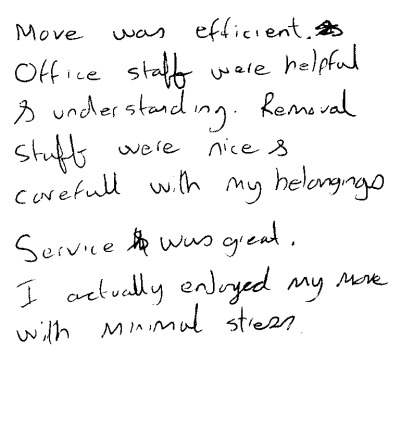 Move was efficient.
Office staff were helpful
& understanding. Removal
staff were nice &
carefull with my belongings
Service was great.
I actually enjoyed my move
with minimal stress